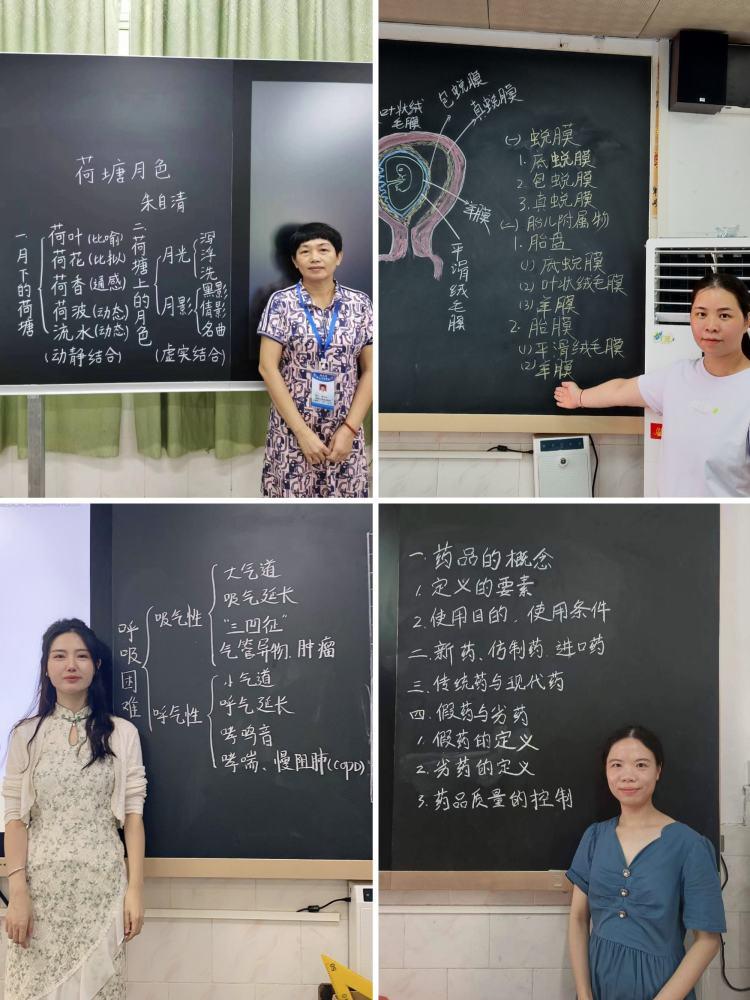 荷塘月色
朱自清
一月下的荷塘
荷叶(比喻)
荷花(比拟)
荷香(通感)
荷波(动态)
流水(动态)
(动静结合)
二荷塘上的月色
月光
泻
浮
洗
月影
黑影
倩影
名曲
(虚实结合)
叶状绒
毛膜
包蜕膜
真蜕膜
羊膜
平滑绒毛膜
(一) 蜕膜
1. 底蜕膜
2. 包蜕膜
3. 真蜕膜
(二) 胎儿附属物
1. 胎盘
(1) 底蜕膜
(2) 叶状绒毛膜
(3) 羊膜
2. 胎膜
(1) 平滑绒毛膜
(2) 羊膜
呼吸困难
吸气性
大气道
吸气延长
“三凹征”
气管异物、肿瘤
呼气性
小气道
呼气延长
哮鸣音
哮喘、慢阻肺(COPD)
一.药品的概念
1. 定义的要素
2. 使用目的、使用条件
二.新药、仿制药、进口药
三.传统药与现代药
四.假药与劣药
1. 假药的定义
2. 劣药的定义
3. 药品质量的控制